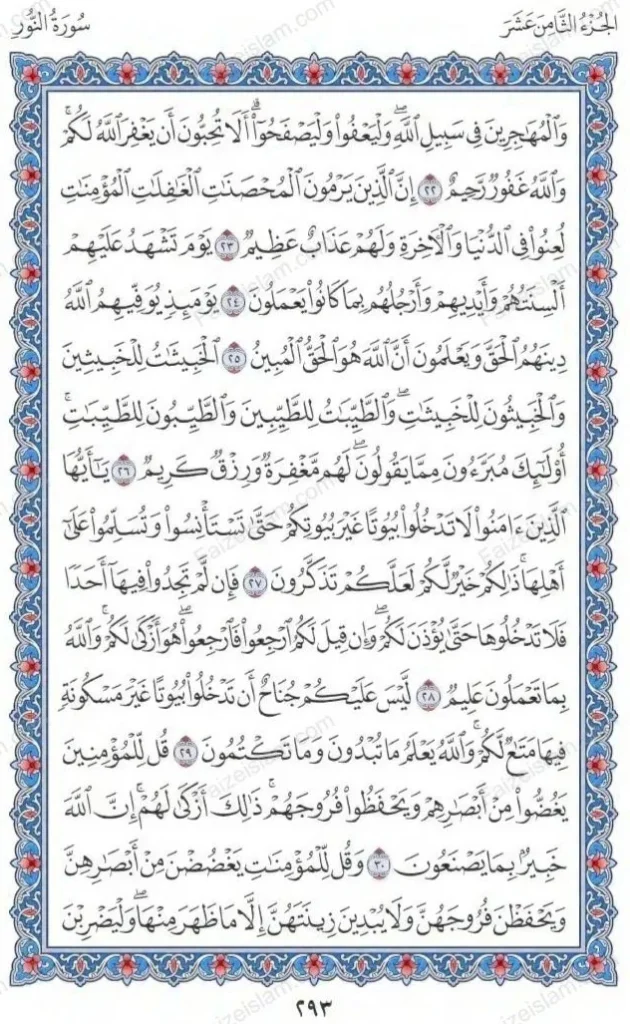 الجُزْءُ الثَّامِنَ عَشَرَ
سُورَةُ النُّورِ
وَٱلْمُهَٰجِرِينَ فِى سَبِيلِ ٱللَّهِ ۖ وَلْيَعْفُوا۟ وَلْيَصْفَحُوٓا۟ ۗ أَلَا تُحِبُّونَ أَن يَغْفِرَ ٱللَّهُ لَكُمْ ۗ
وَٱللَّهُ غَفُورٌ رَّحِيمٌ ٢٢ إِنَّ ٱلَّذِينَ يَرْمُونَ ٱلْمُحْصَنَٰتِ ٱلْغَٰفِلَٰتِ ٱلْمُؤْمِنَٰتِ
لُعِنُوا۟ فِى ٱلدُّنْيَا وَٱلْـَٔاخِرَةِ وَلَهُمْ عَذَابٌ عَظِيمٌ ٢٣ يَوْمَ تَشْهَدُ عَلَيْهِمْ
أَلْسِنَتُهُمْ وَأَيْدِيهِمْ وَأَرْجُلُهُم بِمَا كَانُوا۟ يَعْمَلُونَ ٢٤ يَوْمَئِذٍ يُوَفِّيهِمُ ٱللَّهُ
دِينَهُمُ ٱلْحَقَّ وَيَعْلَمُونَ أَنَّ ٱللَّهَ هُوَ ٱلْحَقُّ ٱلْمُبِينُ ٢٥ ٱلْخَبِيثَٰتُ لِلْخَبِيثِينَ
وَٱلْخَبِيثُونَ لِلْخَبِيثَٰتِ ۖ وَٱلطَّيِّبَٰتُ لِلطَّيِّبِينَ وَٱلطَّيِّبُونَ لِلطَّيِّبَٰتِ ۚ
أُو۟لَٰٓئِكَ مُبَرَّءُونَ مِمَّا يَقُولُونَ ۖ لَهُم مَّغْفِرَةٌ وَرِزْقٌ كَرِيمٌ ٢٦ يَٰٓأَيُّهَا
ٱلَّذِينَ ءَامَنُوا۟ لَا تَدْخُلُوا۟ بُيُوتًا غَيْرَ بُيُوتِكُمْ حَتَّىٰ تَسْتَأْنِسُوا۟ وَتُسَلِّمُوا۟ عَلَىٰٓ
أَهْلِهَا ۚ ذَٰلِكُمْ خَيْرٌ لَّكُمْ لَعَلَّكُمْ تَذَكَّرُونَ ٢٧ فَإِن لَّمْ تَجِدُوا۟ فِيهَآ أَحَدًا
فَلَا تَدْخُلُوهَا حَتَّىٰ يُؤْذَنَ لَكُمْ ۖ وَإِن قِيلَ لَكُمُ ٱرْجِعُوا۟ فَٱرْجِعُوا۟ ۖ هُوَ أَزْكَىٰ لَكُمْ ۚ وَٱللَّهُ
بِمَا تَعْمَلُونَ عَلِيمٌ ٢٨ لَّيْسَ عَلَيْكُمْ جُنَاحٌ أَن تَدْخُلُوا۟ بُيُوتًا غَيْرَ مَسْكُونَةٍ
فِيهَا مَتَٰعٌ لَّكُمْ ۚ وَٱللَّهُ يَعْلَمُ مَا تُبْدُونَ وَمَا تَكْتُمُونَ ٢٩ قُل لِّلْمُؤْمِنِينَ
يَغُضُّوا۟ مِنْ أَبْصَٰرِهِمْ وَيَحْفَظُوا۟ فُرُوجَهُمْ ۚ ذَٰلِكَ أَزْكَىٰ لَهُمْ ۗ إِنَّ ٱللَّهَ
خَبِيرٌۢ بِمَا يَصْنَعُونَ ٣٠ وَقُل لِّلْمُؤْمِنَٰتِ يَغْضُضْنَ مِنْ أَبْصَٰرِهِنَّ
وَيَحْفَظْنَ فُرُوجَهُنَّ وَلَا يُبْدِينَ زِينَتَهُنَّ إِلَّا مَا ظَهَرَ مِنْهَا ۖ وَلْيَضْرِبْنَ
٢٩٣
Faizeislam.com